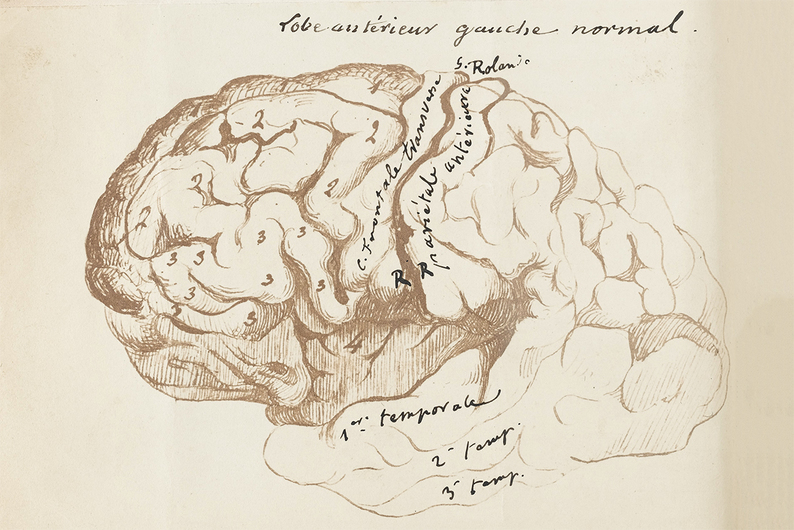 Lobe antérieur gauche normal.
S. Rolando
C. Frontale transverse
pariétale antérieure
2
2
2
2
2
3
3
3
3
3
3
3
3
R
R
4
1ère temporale
2e temp.
3e temp.